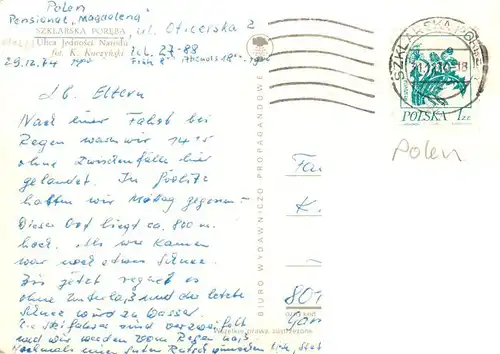 Polen
Pensionat „Magdalena"
ul. Oficerska 2
SZKLARSKA PORĘBA
Ulica Jedności Narodu
fot. K. Kaczyński
tel. 27-88
29.12.74
Früh 8⁰⁰ Abends 18⁰⁰
Lb. Eltern
Nach einer Fahrt bei
Regen waren wir 14¹⁵
ohne Zwischenfälle hier
gelandet. In Görlitz
hatten wir Mittag gegessen.
Dieser Ort liegt ca. 800 m
hoch. Als wir kamen
war noch etwas Schnee.
Bis jetzt regnet es
ohne Unterlaß und der letzte
Schnee wird zu Wasser.
Die Skifahrer sind verzweifelt
und wir werden vom Regen naß
Nochmals einen guten Rutsch wünschen
BIURO WYDAWNICZO PROPAGANDOWE
SZKLARSKA PORĘBA
POLSKA 1 ZŁ
Polen
Fa
K.
801
Gör